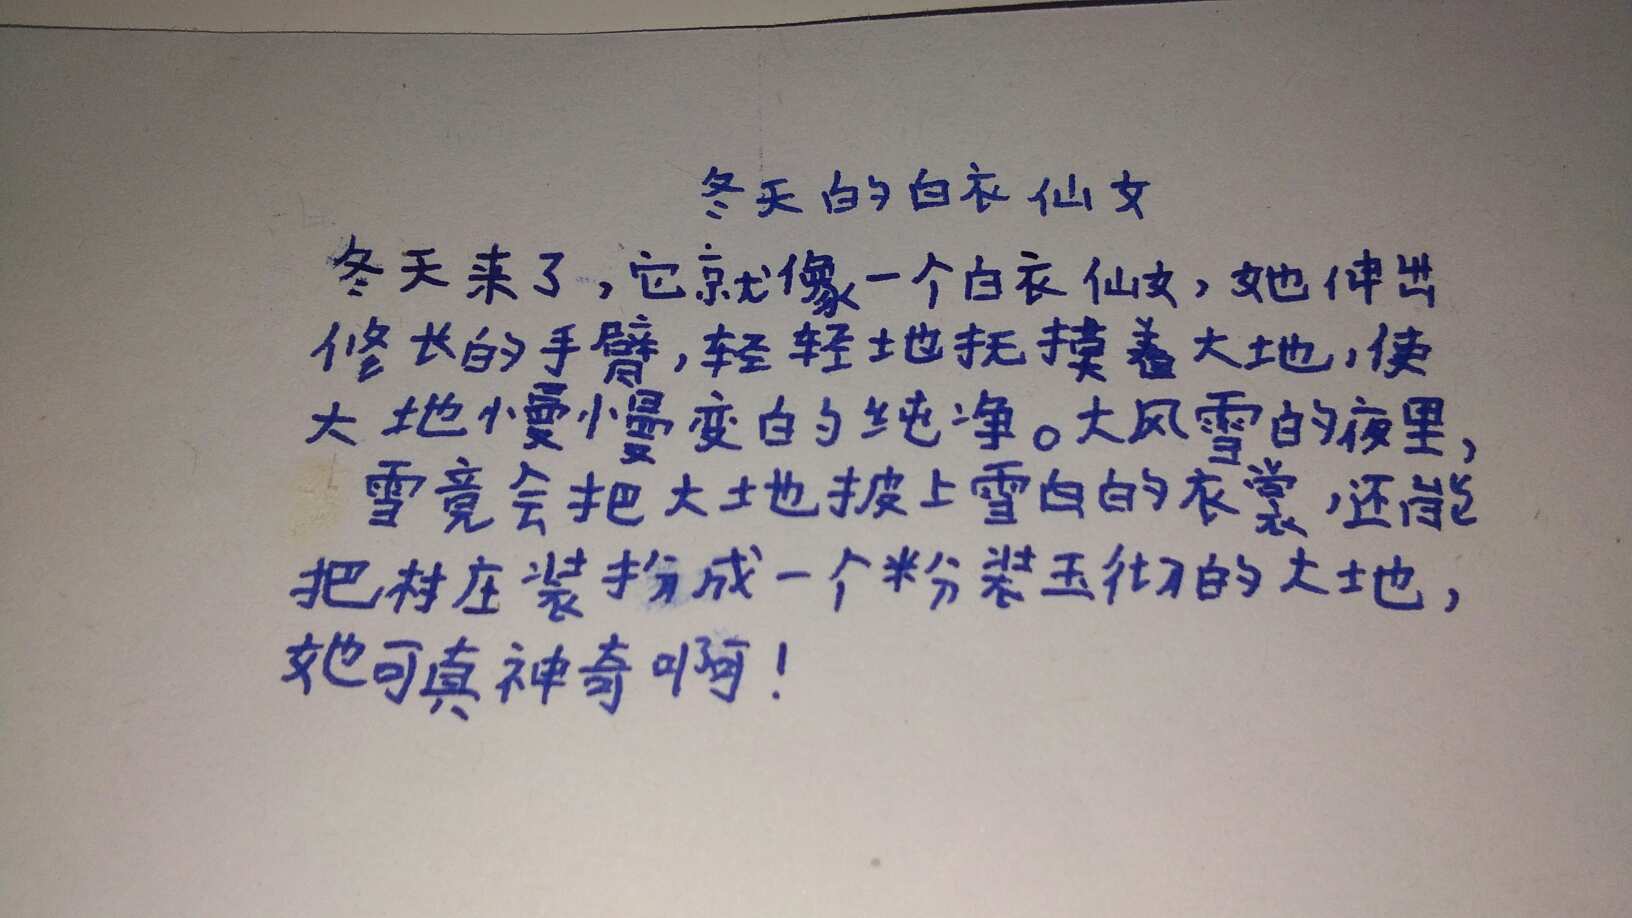 冬天的白衣仙女
冬天来了,它就像一个白衣仙女,她伸出
修长的手臂,轻轻地抚摸着大地,使
大地慢慢变白的纯净。大风雪的夜里,
雪竟会把大地披上雪白的衣裳,还能
把村庄装扮成一个粉装玉彻的大地,
她可真神奇啊!